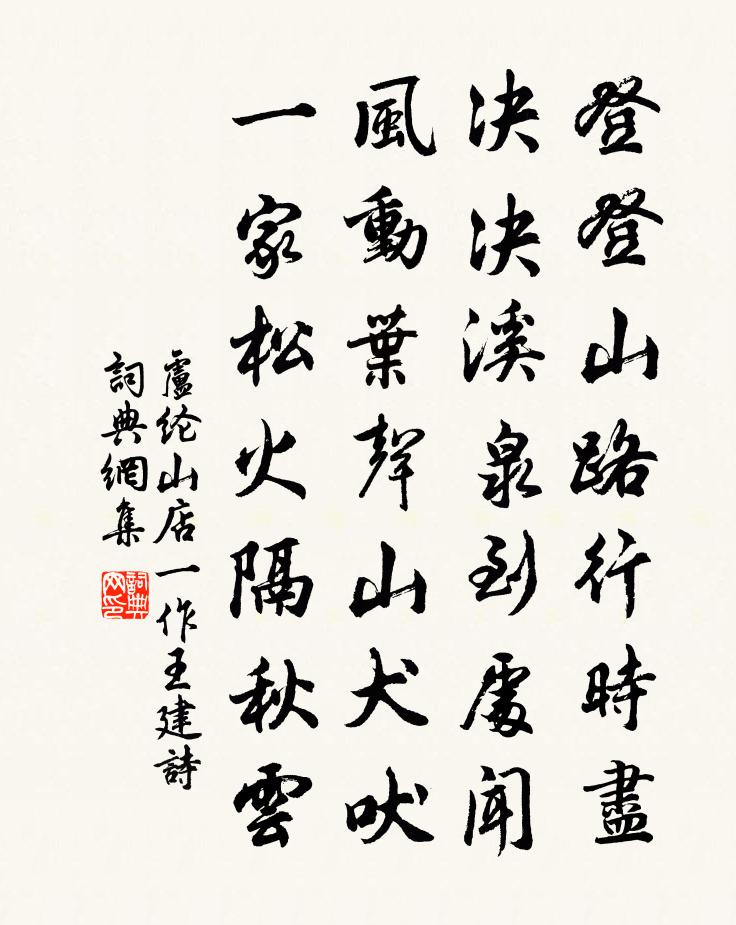 登登山路行時盡
決決溪泉到處聞
風動葉聲山犬吠
一家松火隔秋雲
盧纶山店一作王建詩
詞典網集
詞典网印